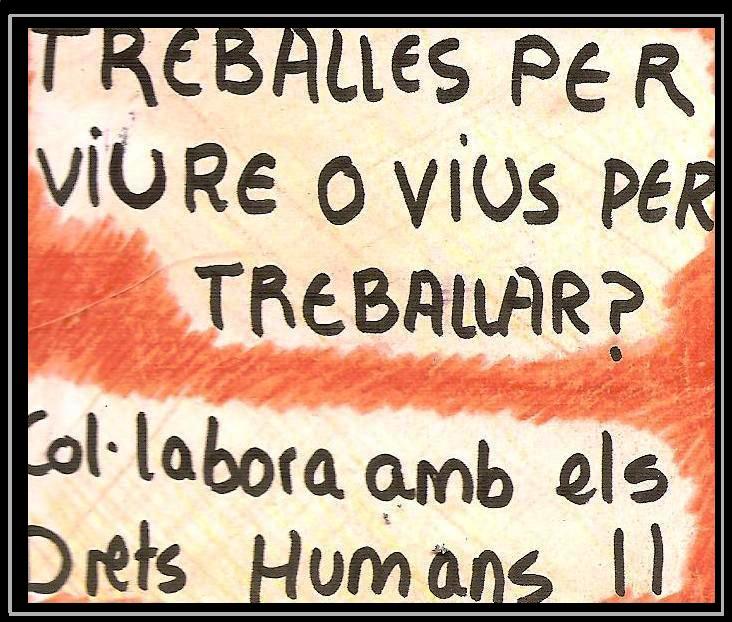 TREBALLES PER
VIURE O VIUS PER
TREBALLAR?
Col·labora amb els
Drets Humans !!